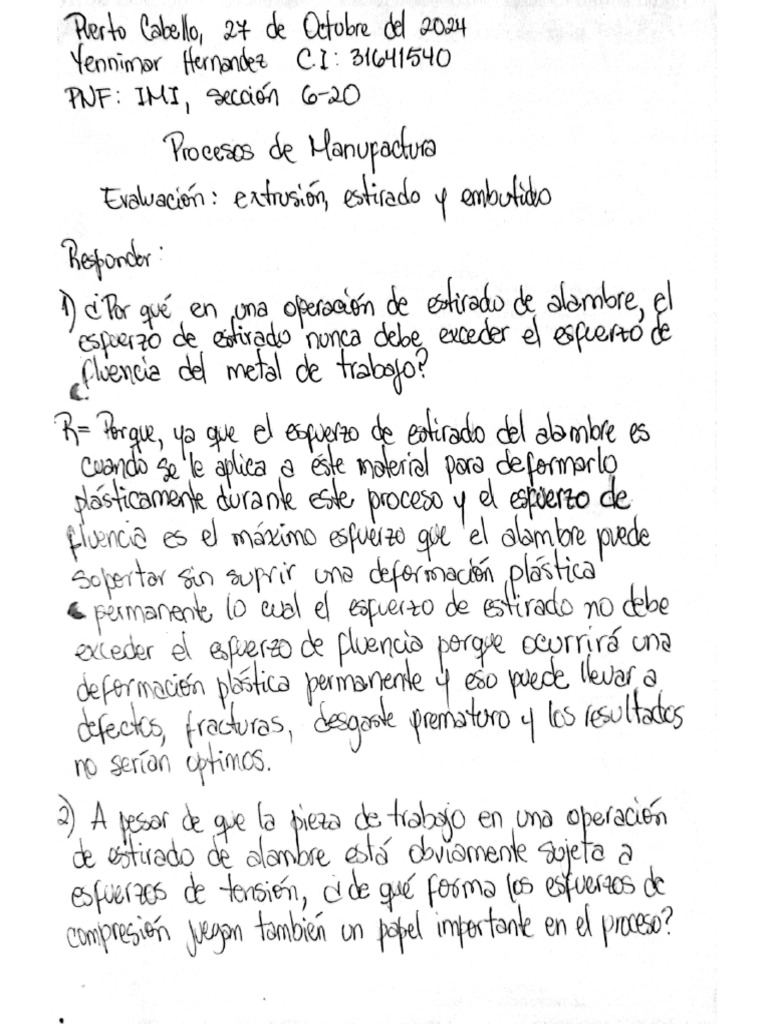 Puerto Cabello, 27 de Octubre del 2024
Yennimar Hernandez C.I: 31641540
PNF: IMI, sección 6-20
Procesos de Manufactura
Evaluación: extrusión, estirado y embutido
Responder:
1) ¿Por qué en una operación de estirado de alambre, el
esfuerzo de estirado nunca debe exceder el esfuerzo de
fluencia del metal de trabajo?
R= Porque, ya que el esfuerzo de estirado del alambre es
cuando se le aplica a éste material para deformarlo
plásticamente durante este proceso y el esfuerzo de
fluencia es el máximo esfuerzo que el alambre puede
soportar sin sufrir una deformación plástica
permanente lo cual el esfuerzo de estirado no debe
exceder el esfuerzo de fluencia porque ocurrirá una
deformación plástica permanente y eso puede llevar a
defectos, fracturas, desgaste prematuro y los resultados
no serían optimos.
2) A pesar de que la pieza de trabajo en una operación
de estirado de alambre está obviamente sujeta a
esfuerzos de tensión, ¿de qué forma los esfuerzos de
compresión juegan también un papel importante en el proceso?